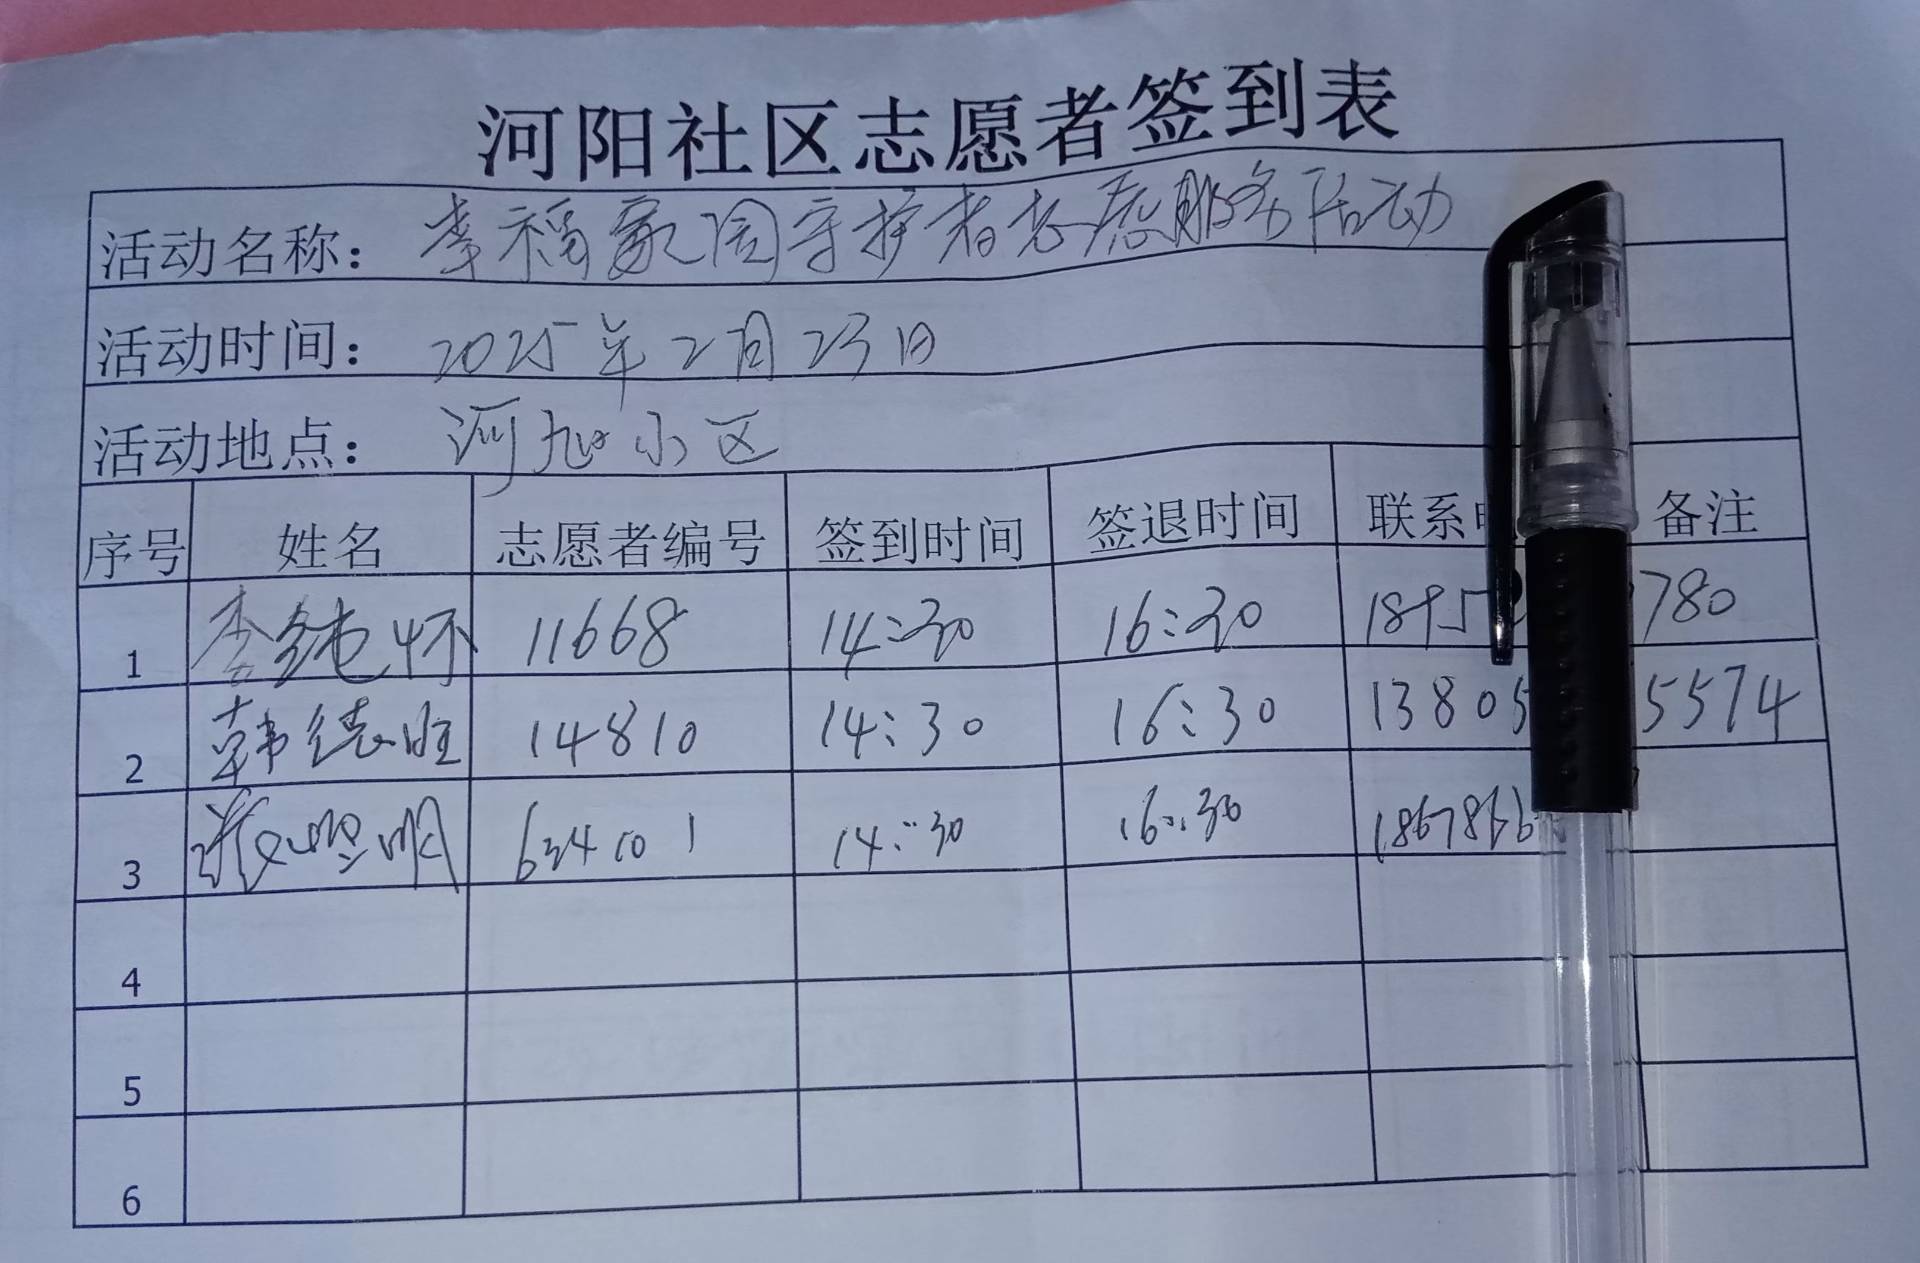 河阳社区志愿者签到表
活动名称：幸福家园守护者志愿服务活动
活动时间：2025年2月23日
活动地点：河旭小区
序号 姓名 志愿者编号 签到时间 签退时间 联系 备注
1 李纯怀 11668 14:30 16:30 780
2 韩德旺 14810 14:30 16:30 13805 5574
3 14:30 16:30
4
5
6